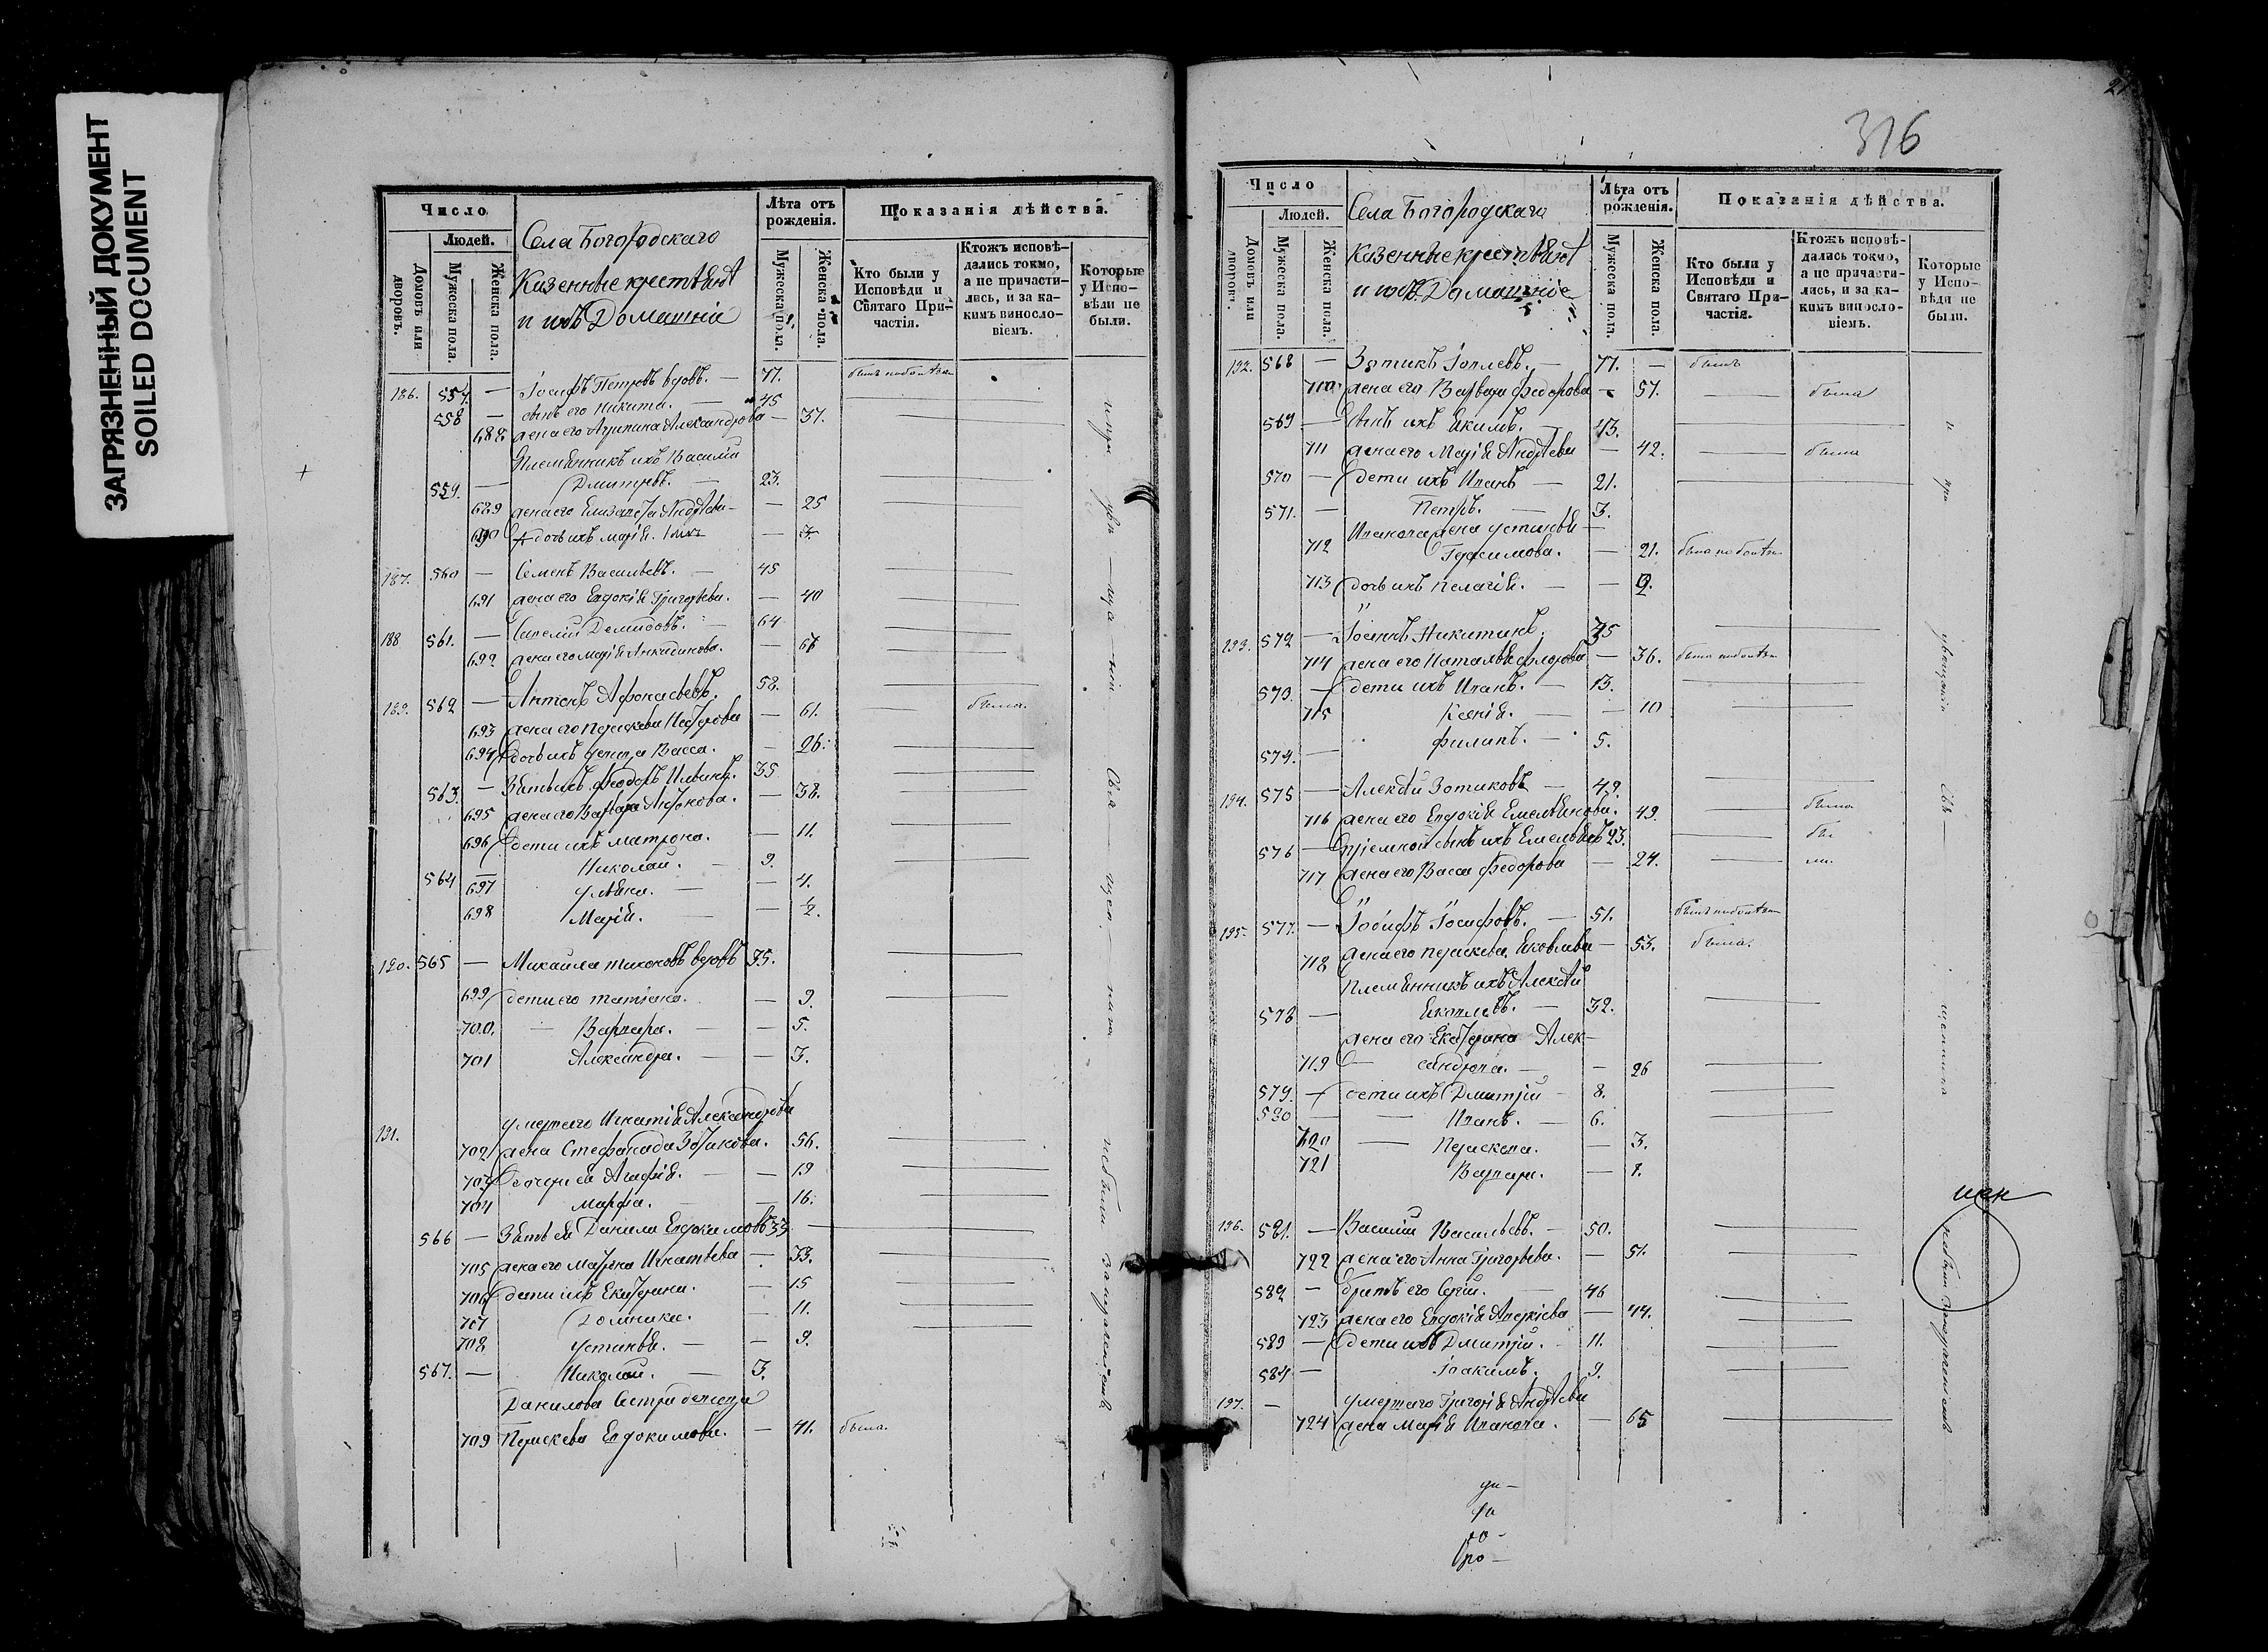 ЗАГРЯЗНЕННЫЙ ДОКУМЕНТ
SOILED DOCUMENT
Число
Людей.
Домовъ или дворовъ.
Мужеска пола.
Женска пола.
Села Богородскаго
Казенные крестьянѣ
и ихъ Домашніе
Лѣта отъ рожденія.
Мужеска пола.
Женска пола.
Показанія дѣйства.
Кто были у Исповѣди и Святаго Причастія.
Ктожъ исповѣдались токмо, а не причастились, и за какимъ винословіемъ.
Которые у Исповѣди не были.
186. 557. — Іосифъ Петровъ вдовъ. — 77.
558 — сынъ его Никита. — 45
688 жена его Агрипина Александрова — 37.
Племянникъ ихъ Василій
559. — Дмитревъ. — 23.
689 жена его Елизавета Андреева — 25
690 дочь ихъ Марія. — 3.
187. 560 — Семенъ Васильевъ. — 45
691 жена его Евдокія Григорьева. — 40
188 561. — Савелій Демидовъ. — 64
692 жена его Марія — 67
189. 562 — Антонъ Афонасьевъ. 58.
693 жена его Параскева — 61. была.
694 дочь ихъ девица Васса. — 26.
563. — Зять ихъ Феодоръ Ильинъ. 35
695 жена его Варвара Антонова. — 38.
696 дети ихъ Матрона. — 11.
564 — Николай. — 9.
697 Ульяна. — 4.
698 Марія. — ½.
190. 565 — Михаила Тихоновъ вдовъ 35.
699 дети его Татіана. — 9.
700. — Варвара. — 5.
701 Александра. — 3.
191. умершаго Игнатія Александрова
702 жена Стефанида Зотикова. 56.
703 дочери ея Агафія. — 19
704 Марфа. — 16.
566 — Зять ея Данила Евдокимовъ 33
705 жена его Марфа Игнатьева — 33.
706 дети ихъ Екатерина. — 15
707 Домника. 11.
708 Устинья. — 9.
567. — Николай. — 3.
Данилова Сестра девица
709 Параскева Евдокимова. — 41. была.
316
Число
Людей.
Домовъ или дворовъ.
Мужеска пола.
Женска пола.
Села Богородскаго
казенные крестьянѣ
и ихъ Домашніе
Лѣта отъ рожденія.
Мужеска пола.
Женска пола.
Показанія дѣйства.
Кто были у Исповѣди и Святаго Причастія.
Ктожъ исповѣдались токмо, а не причастились, и за какимъ винословіемъ.
Которые у Исповѣди не были.
192. 568 — Зотикъ — 77. — былъ
710. жена его Варвара Федорова — 57. была
569 — Сынъ ихъ Екимъ. — 43.
711 жена его Марія Андреева — 42. была
570 — дети ихъ Иванъ — 21.
571. — Петръ. — 3.
Иванова жена Устинья
712 Герасимова. — 21.
713 дочь ихъ Пелагія. —
193. 572 — Никитинъ. 35
714 жена его Наталья — 36.
573. — дети ихъ Иванъ. — 13.
715 Ксенія. — 10
574. — Филипъ. — 5.
194. 575 — Алексѣй Зотиковъ — 49.
716 жена его Евдокія Емельянова. 49. была
576 — пріемной сынъ ихъ Емельянъ 23.
717 жена его Васса Федорова — 24.
195. 577. — Іосифъ Іосифовъ. — 51.
718 жена его Параскева Яковлева — 53. была.
Племянникъ ихъ Алексѣй
578 — Яковлевъ. — 32.
жена его Екатерина Алек-
719 сандрова. — 26
579. — дети ихъ Дмитрій — 8.
580 — Иванъ. — 6.
720 — Параскева. — 3.
721 Варвара. — 1.
196. 581. — Василій Васильевъ. — 50.
722 жена его Анна Григорьева. — 51.
582 — братъ его Сергій. 46
723 жена его Евдокія — 44.
583 — дети ихъ Дмитрій. 11.
584 — Іоакимъ. 9.
197. — умершаго Григорія Андреева
724 жена Марія Иванова. — 65